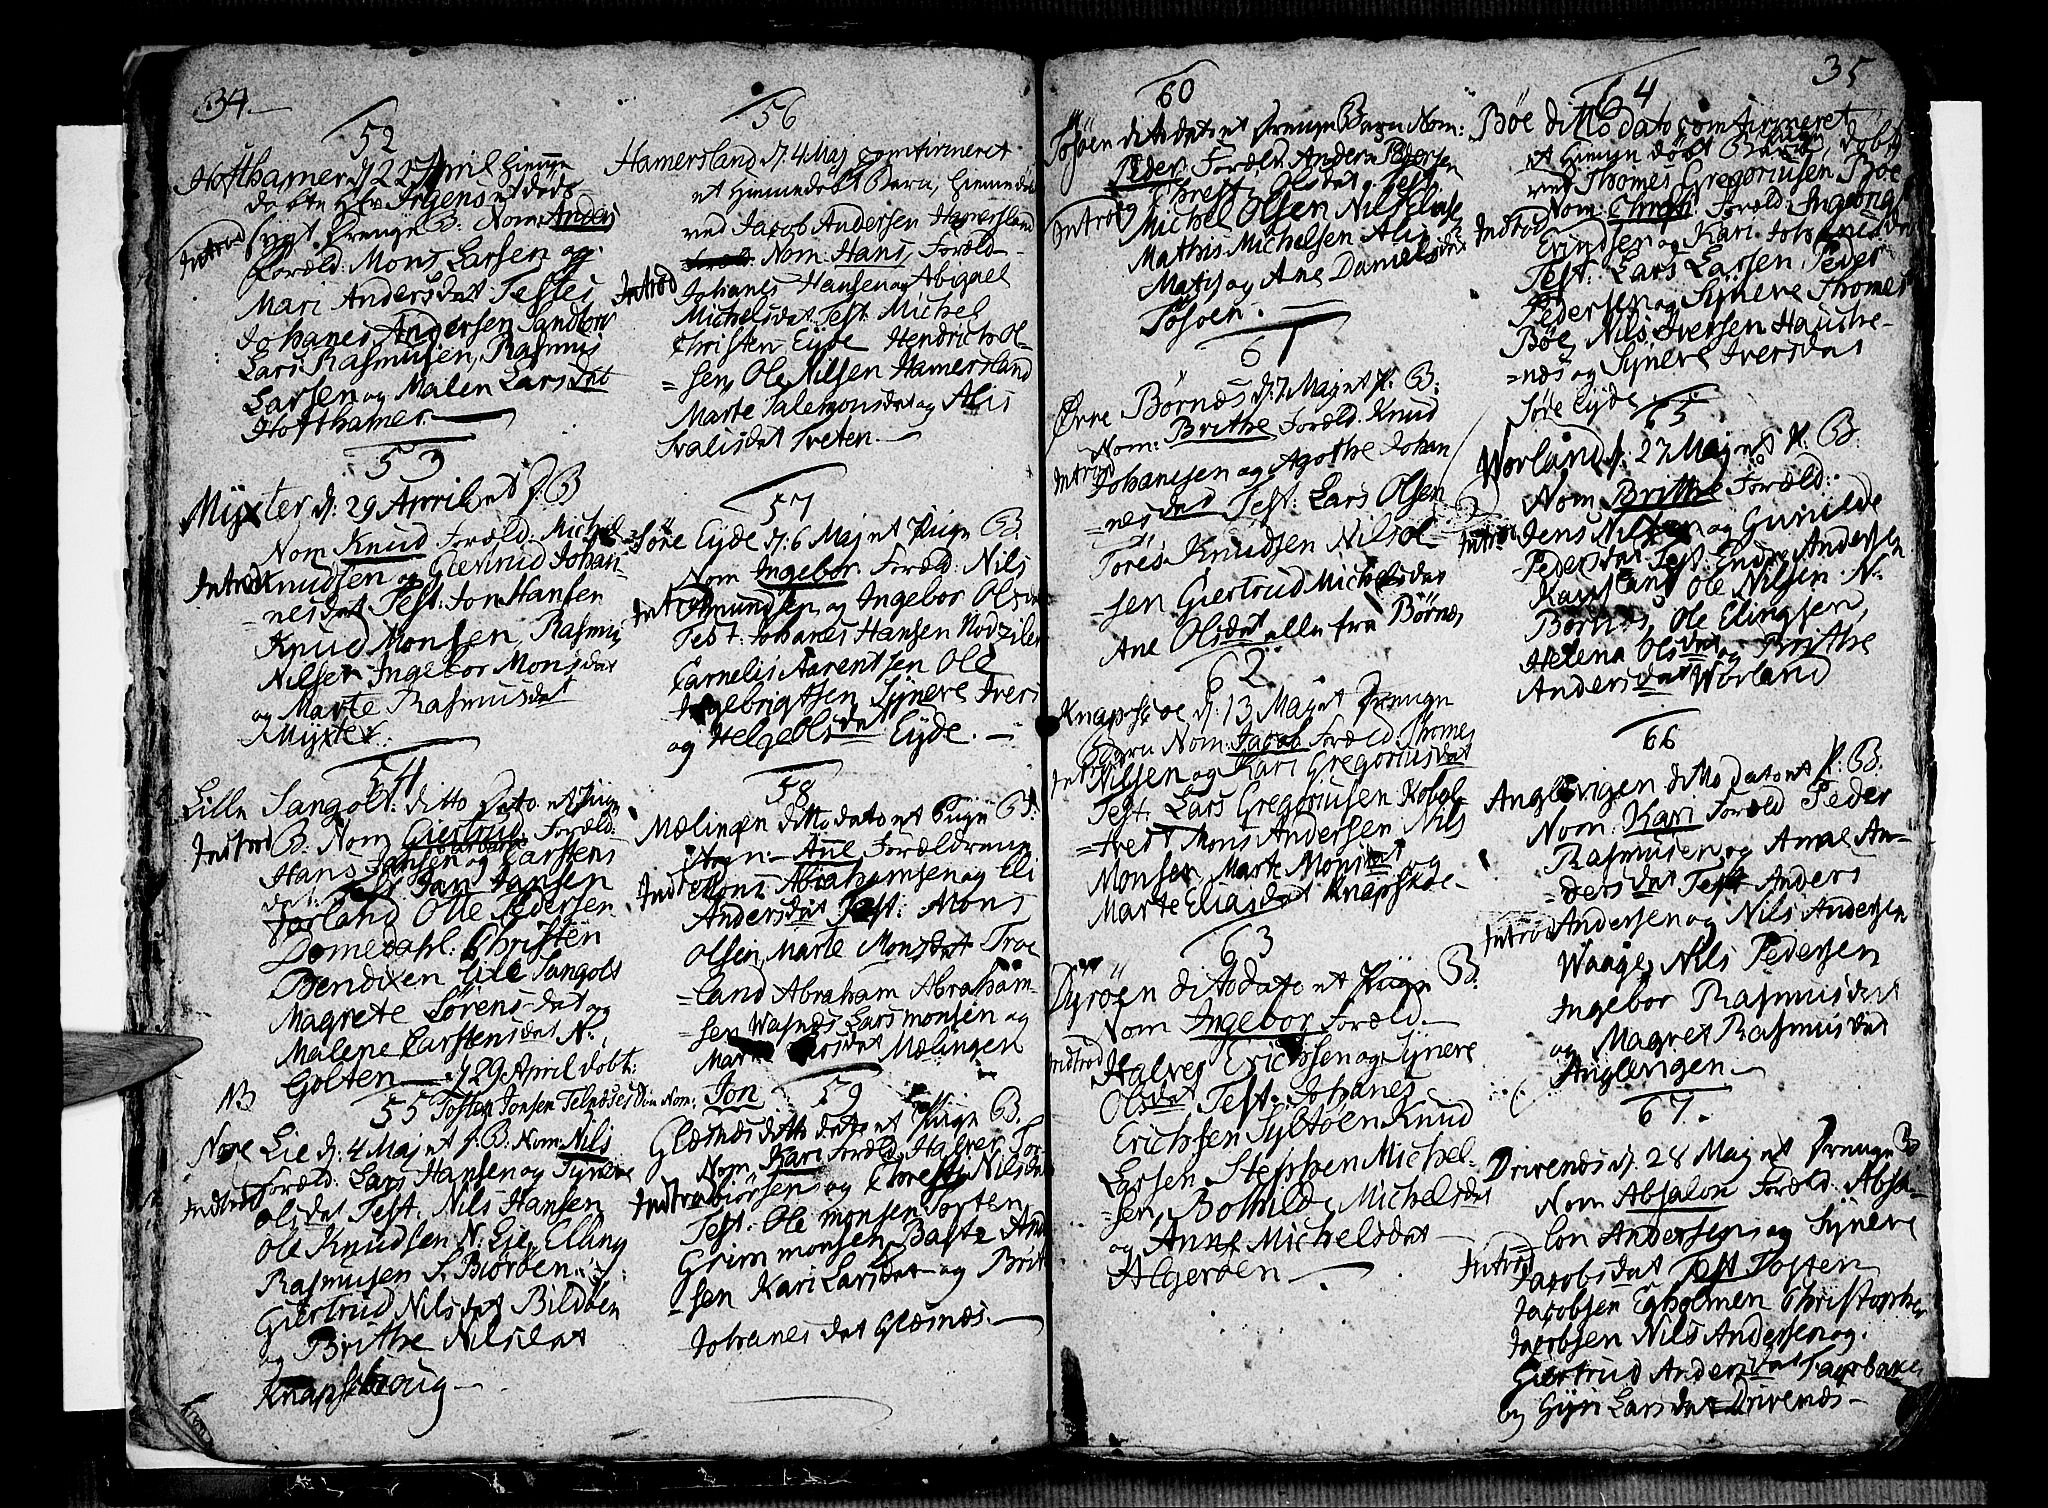 34.
52
Hofthamer d. 22 April hiemme
døbte Hr Irgens et døds
Introd sygt Drenge B: Nom: Anders
Foræld: Mons Larsen og
Mari Andersdat Testes
Johanes Andersen Sandtorv
Lars Rasmusen, Rasmus
Larsen og Malen Larsdat
Hofthamer.
53
Myxter d: 29 April et J: B
Nom Knud Foræld: Michel
Introd Knudsen og Giertrud Johan-
=nesdat Test: Jon Hansen
Knud Monsen Rasmus
Nilsen Ingebor Monsdat
og Marte Rasmusdat
Myxter.
54
Lille Sangolt: ditto Dato et Pige
Indtrod B. Nom Giertrud Foræld:
Hans Jansen og Barbara Carstens
dat: Test: Jan Jansen
Forland Olle Pedersen
Domedahl: Christen
Bendixen Lile Sangolt
Magrete Sørens-dat og
Malene Carstensdat N.
Golten
NB d 29 April døbt:
Tosten Jonsen Telnæses Søn Nom: Jon
55
Nore Lie d: 4 Maj et J: B: Nom: Nils
Foræld: Lars Hansen og Syneve
Indtrod Olsdat Test: Nils Hansen
Ole Knudsen N: Lie, Elling
Rasmusen S. Biöröen
Giertrud Nilsdat Bildöen
og Brithe Nilsdat
Knapskoug
56
Hamersland d. 4 Maj comfirmeret
et Hiemmedöbt Barn, hiemmedöbt
ved Jacob Andersen Hamersland
Nom: Hans, Foræld
Introd Johanes Hansen og Abigael
Michelsdat: Test: Michel
Christen Eyde Hendrich Ol-
=sen, Ole Nilsen Hamersland
Marte Salemonsdat og Alis
Svalisdat Tveten.
57
Söre Eyde d: 6 Maj et Pige B.
Nom Ingebor Foræld: Nils
Introd Amundsen og Ingebor Olsdat
Test: Johanes Hansen Nordziler
Carnelis Aarentsen Ole
Ingebrigtsen, Synere Ivers
og Helge Olsdat Eyde.
58
Mælingen ditto dato et Pige B:
Nom: Ane Forældrene
Indtrod Mons Abrahamsen og Eli
Andersdat Test: Mons
Olsen, Marte Monsdat Troe
=land Abraham Abraham-
=sen Wasnæs Lars Monsen og
Mælingen
59
Glesnæs ditto dato et Pige B.
Nom Kari Foræld: Halver Tor
Indtrod biörsen og Chresti Nilsdat
Test: Ole monsen Torten
Grim monsen Baste And
=sen Kari Larsdat og Brit
Johanes dat Glesnæs.
60
Tösöen ditto dato et Drenge Barn Nom:
Peder, Foræld: Anders Pedersen
Chresti Olsdat: Test:
Introd Michel Olsen Nils Olsen
Mathis Michelsen Alis
Matis og Ane Danielsdat
Tösöen.
61
Övre Börnæs d. 7 Maj et P: B:
Nom: Brithe Foræld: Knud
Introd Johansen og Agothe Johan
=nesdat Test: Lars Olsen
Tores Knudsen Nils Ol=
=sen Giertrud Michelsdat
Ane Olsdat alle fra Börnæs
62
Knapskoe d. 13 Maj et Drenge
Barn Nom: Jacob Foræld Thomes
Introd Nilsen og Kari Gregoriusdat
Test. Lars Gregoriusen Kobel-
=tvedt Mons Andersen Nils
Monsen Marte Monsdat og
Marte Eliasdat Knapskoe-
63
Dyröen ditto dato et Pige B.
Nom Ingebor Foræld.
Indtrod Halver Erichsen og Synere
Olsdat, Test: Johanes
Erichsen Syltöen Knud
Larsen Stephen Michel-
=sen, Bothilde Michelsdat
og Anne Michelsdat
Algeröen
35
64
Böe ditto dato comfirmeret
et hiemme döbt Barn, döbt
ved Thomes Gregoriusen Böe
Nom: Chresti Foræld: Ingebrigt
Indtrod Evindsen og Kari Johanisdat
Test: Lars Larsen, Peder
Pedersen og Synere Thomes
Böe, Nils Iversen Hauchre-
=næs og Synere Iversdat
Söre Eyde
65
Worland d. 27 Maj et P. B.
Nom Brithe Foræld:
Introd Jens Nilsen og Gunilde
Pedersdat Test: Endre Andersen
Kausland Ole Nilsen N.
Börnæs, Ole Elingsen,
Helena Olsdat og Brithe
Andersdat Worland
66
Anglevigen ditto dato et P. B.
Nom: Kari Foræld Peder
Rasmusen og Anne An-
=dersdat Test Anders
Introd Andersen og Nils Andersen
Waage, Nils Pedersen
Ingebor Rasmusdat
og Magret Rasmusdat
Anglevigen
67.
Drivenæs d. 28 Maj et Drenge B
Nom Absalon Foræld: Absa-
=lon Andersen og Synere
Introd Jacobsdat Test Tosten
Jacobsen Egholmen Christopher
Jacobsen Nils Andersen og
Giertrud Andersdat
og Gyri Larsdat Drivenæs